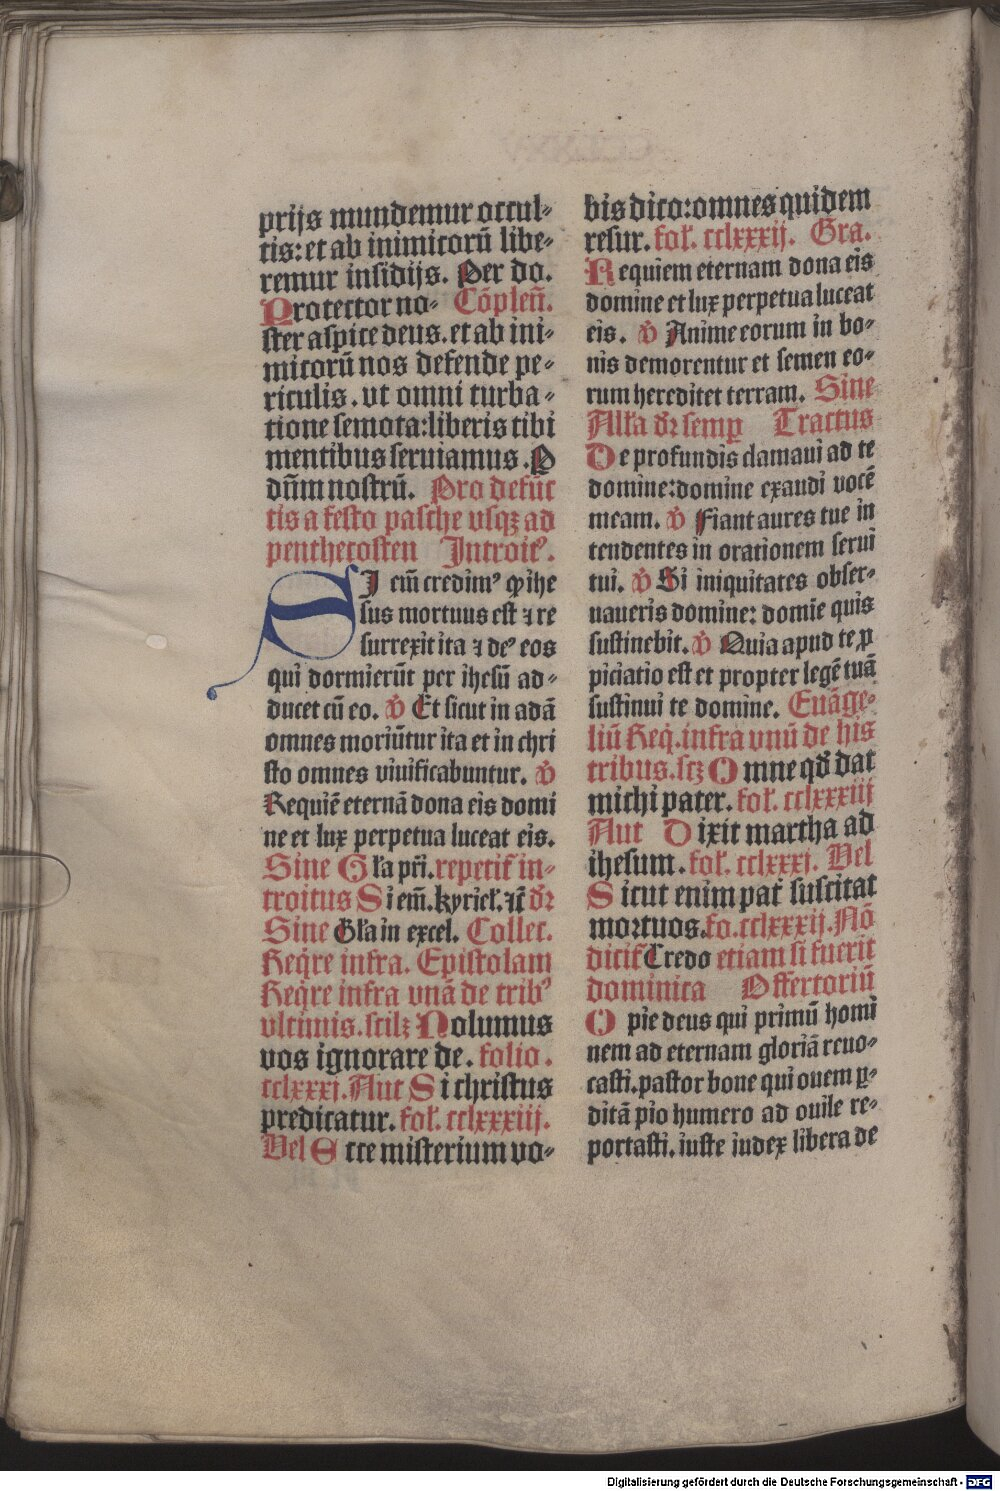 prijs mundemur occul-
tis: et ab inimicorū libe-
remur insidijs. Per do.
Protector no- Cōpleñ.
ster aspice deus. et ab ini-
micorū nos defende pe-
riculis. ut omni turba-
tione semota: liberis tibi
mentibus seruiamus. P
dn̄m nostrū. Pro defūc
tis a festo pasche vsqꝫ ad
penthecosten Introitꝰ.
SI em̄ credimꝰ ꝙ ihe
sus mortuus est ⁊ re
surrexit ita ⁊ deꝰ eos
qui dormierūt per ihesū ad-
ducet cū eo. ℣ Et sicut in adā
omnes moriūtur ita et in chri
sto omnes viuificabuntur. ℣
Requiē eternā dona eis domi
ne et lux perpetua luceat eis.
Sine Gl̄a pr̄i. repetit᷑ in-
troitus Si em̄. kyriel̄. ⁊c̄ dr̄
Sine Gl̄a in excel. Collec.
Req̄re infra. Epistolam
Req̄re infra vnā de tribꝰ
vltimis. scilꝫ Nolumus
vos ignorare de. folio.
cclxxxj. Aut Si christus
predicatur. fol̄. cclxxxiij.
Vel Ecce misterium vo-
bis dico: omnes quidem
resur. fol̄. cclxxxij. Gra.
Requiem eternam dona eis
domine et lux perpetua luceat
eis. ℣ Anime eorum in bo-
nis demorentur et semen eo-
rum hereditet terram. Sine
All̄a dr̄ semꝑ Tractus
De profundis clamaui ad te
domine: domine exaudi vocē
meam. ℣ Fiant aures tue in
tendentes in orationem serui
tui. ℣ Si iniquitates obser-
uaueris domine: domīe quis
sustinebit. ℣ Quia apud te ꝓ
piciatio est et propter legē tuā
sustinui te domine. Euāge-
liū Req̄. infra vnū de his
tribus. scꝫ Omne qd̄ dat
michi pater. fol̄. cclxxxiij
Aut Dixit martha ad
ihesum. fol̄. cclxxxj. Vel
Sicut enim pat̄ suscitat
mortuos. fo. cclxxxij. Nō
dicit᷑ Credo etiam si fuerit
dominica Offertoriū
O pie deus qui primū homi
nem ad eternam gloriā reuo-
casti. pastor bone qui ouem ꝑ-
ditā pio humero ad ouile re-
portasti. iuste iudex libera de
Digitalisierung gefördert durch die Deutsche Forschungsgemeinschaft - DFG